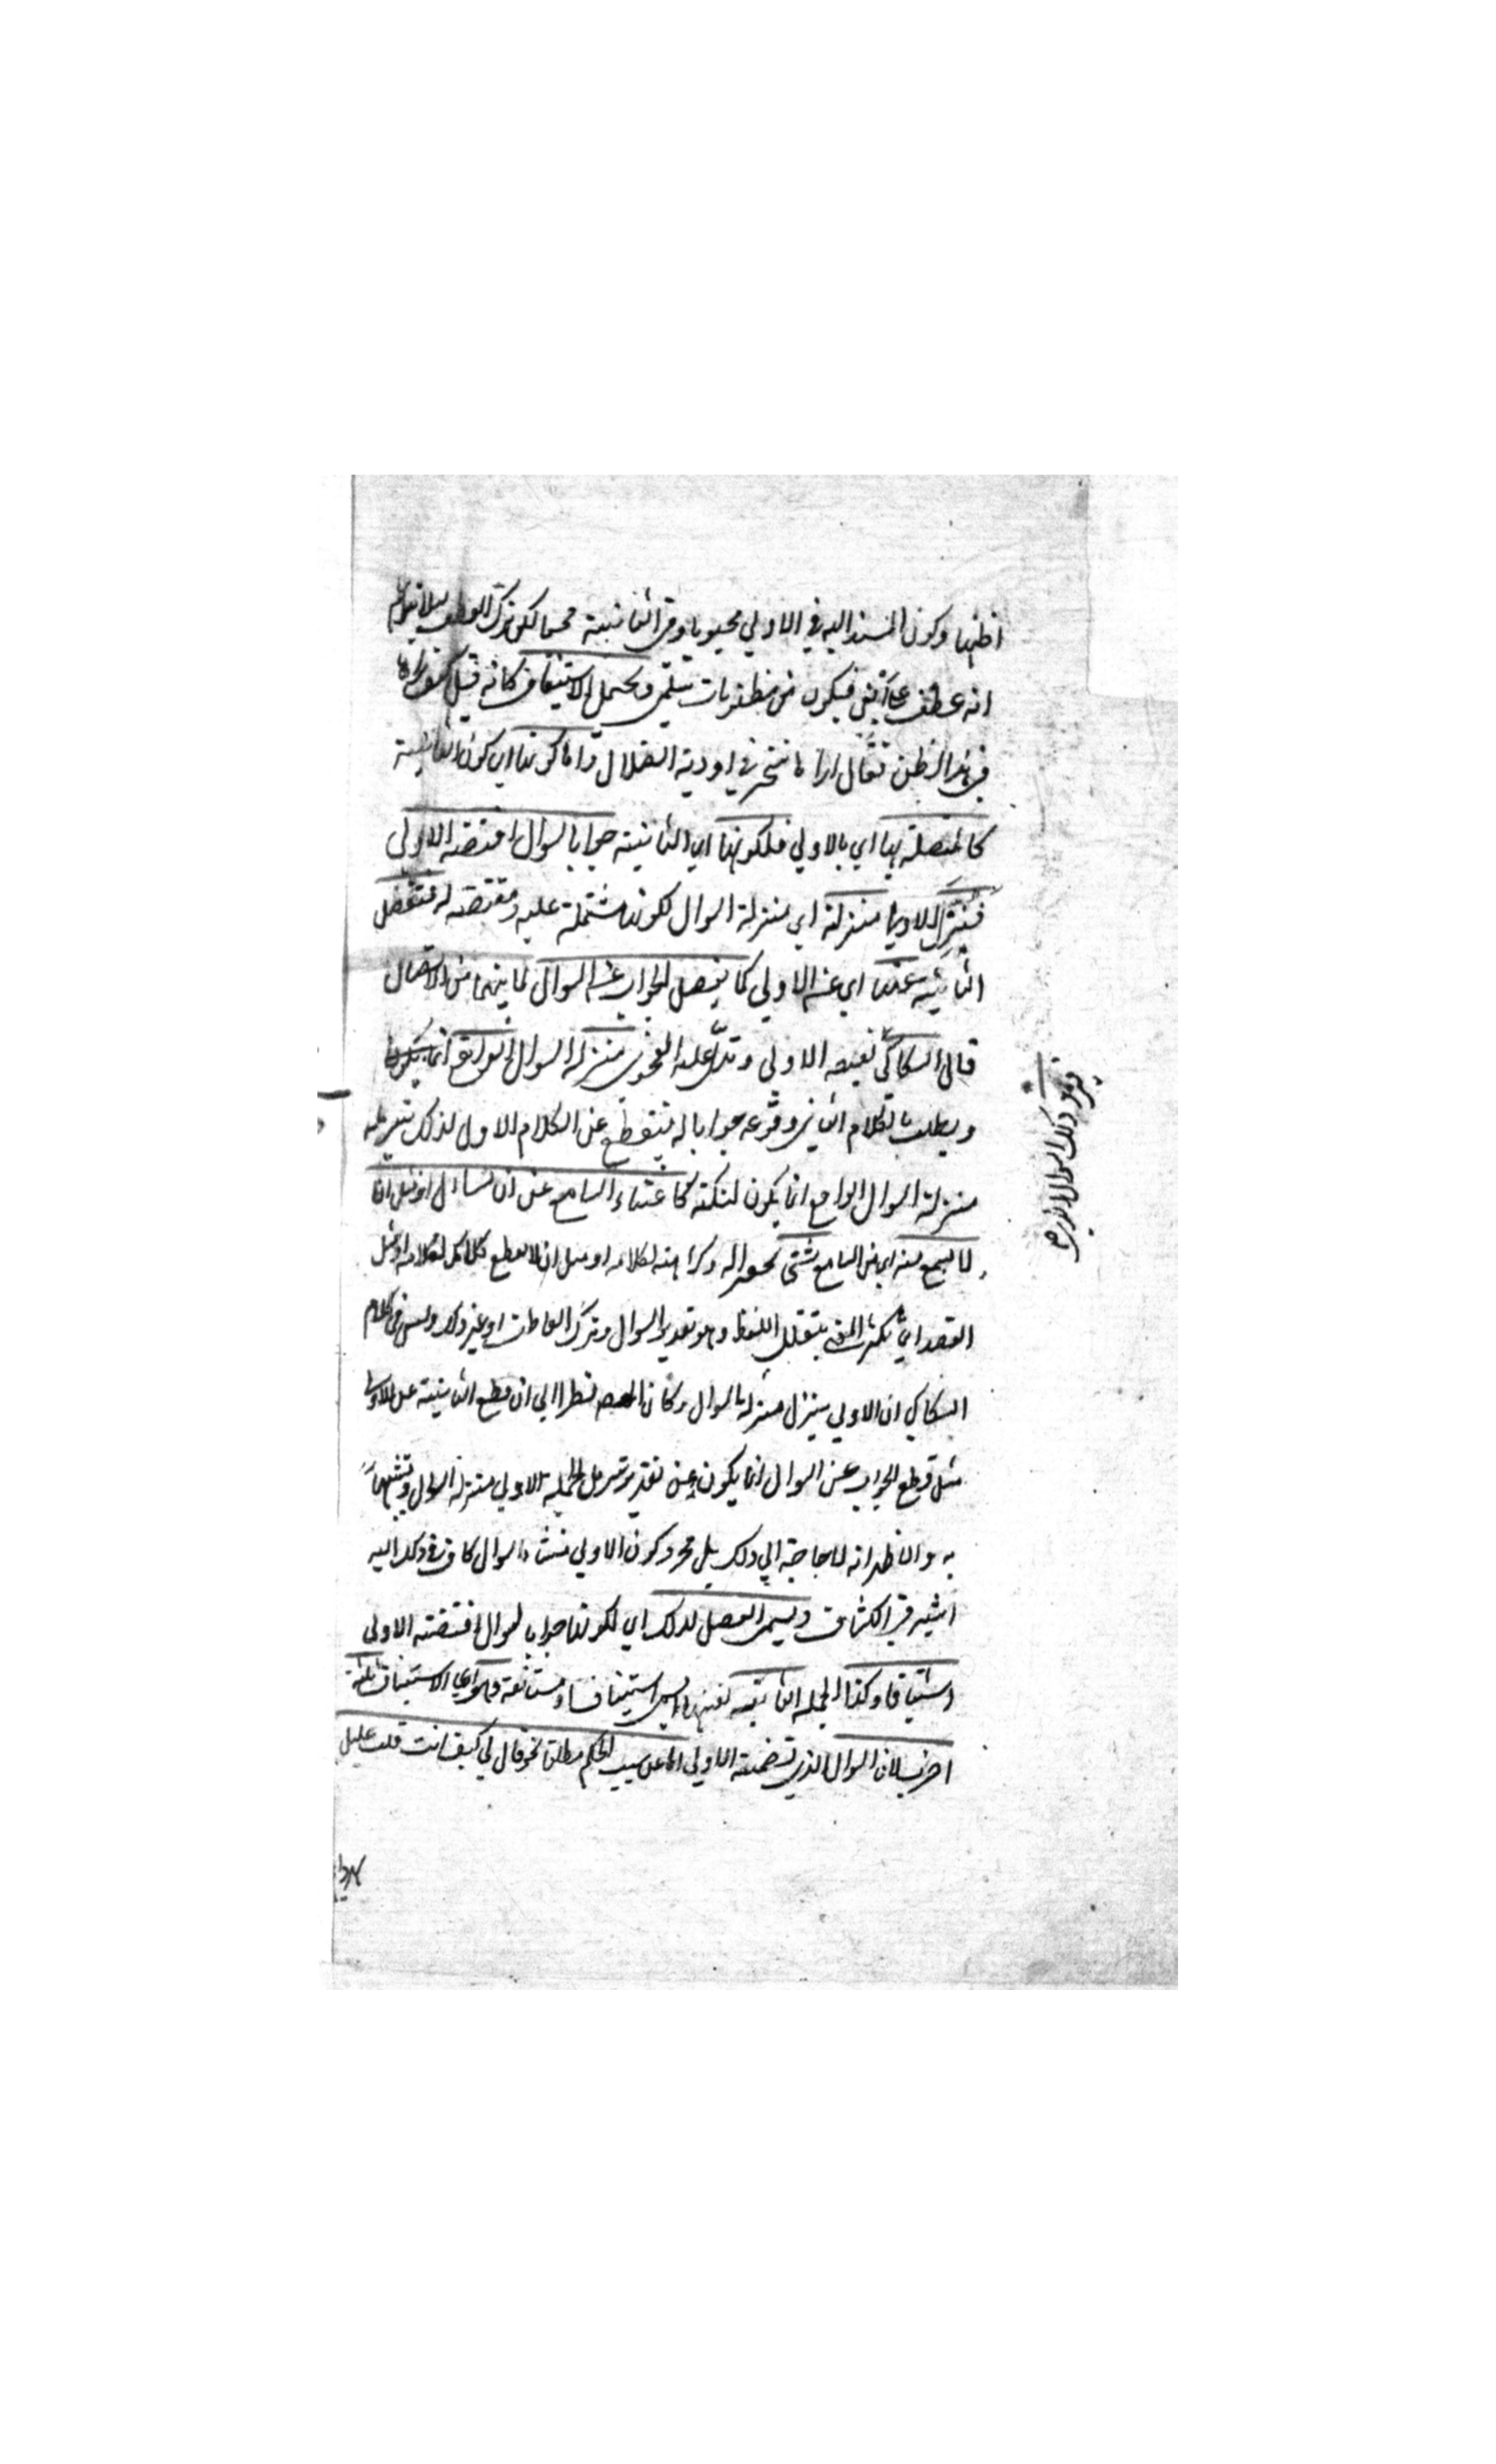 اظنها وكون المسند اليه في الاولي محبوبا وفي الثانية محبا لكن ترك العطف لئلا يتوهم
انه عطف علي ابغي فيكون من مظنونات سلمي ويحتمل الاستيناف كانه قيل كيف تراها
في هذا الظن فقال اراها تتحير في اودية الضلال واما كونها اي كون الثانية
كالمتصلة بها اي بالاولي فلكونها اي الثانية جوابا لسوال اقتضته الاولي
فتنزل الاولي منزلته اي منزلة السوال لكونها مشتملة عليه ومقتضية له فتفصل
الثانية عنها اي عن الاولي كما يفصل الجواب عن السوال لما بينهما من الاتصال
قال السكاكي فينزل ذلك السوال الذي تقتضيه الاولي وتدل عليه بالفحوي منزلة السوال الواقع
ويطلب بالكلام الثاني وقوعه جوابا له فيقطع عن الكلام الاول لذلك تنزيله
منزلة السوال الواقع انما يكون لنكتة كاغناء السامع عن ان يسال او مثل ان
لا يسمع منه اي من السامع شئ تحقيرا له وكراهة لكلامه او مثل ان لا ينقطع كلامك بكلامه او مثل
القصد الي تكثير المعني بتقليل اللفظ وهو تقدير السوال وترك العاطف او غير ذلك وليس في كلام
السكاكي ان الاولي ينزل منزلة السوال وكان المصنف نظر الي ان قطع الثانية عن الاولي
مثل قطع الجواب عن السوال انما يكون علي تقدير تنزيل الجملة الاولي منزلة السوال وتشبيهها
به والاظهر انه لا حاجة الي ذلك بل مجرد كون الاولي منشاء للسوال كاف في ذلك اليه
اشير في الكشاف ويسمي الفصل لذلك اي لكونها جوابا لسوال اقتضته الاولي
استينافا وكذا الجملة الثانية نفسها تسمي استينافا ومستانفة وهو اي الاستيناف ثلثة
اضرب لان السوال الذي تضمنته الاولي اما عن سبب الحكم مطلقا نحو قال لي كيف انت قلت عليل